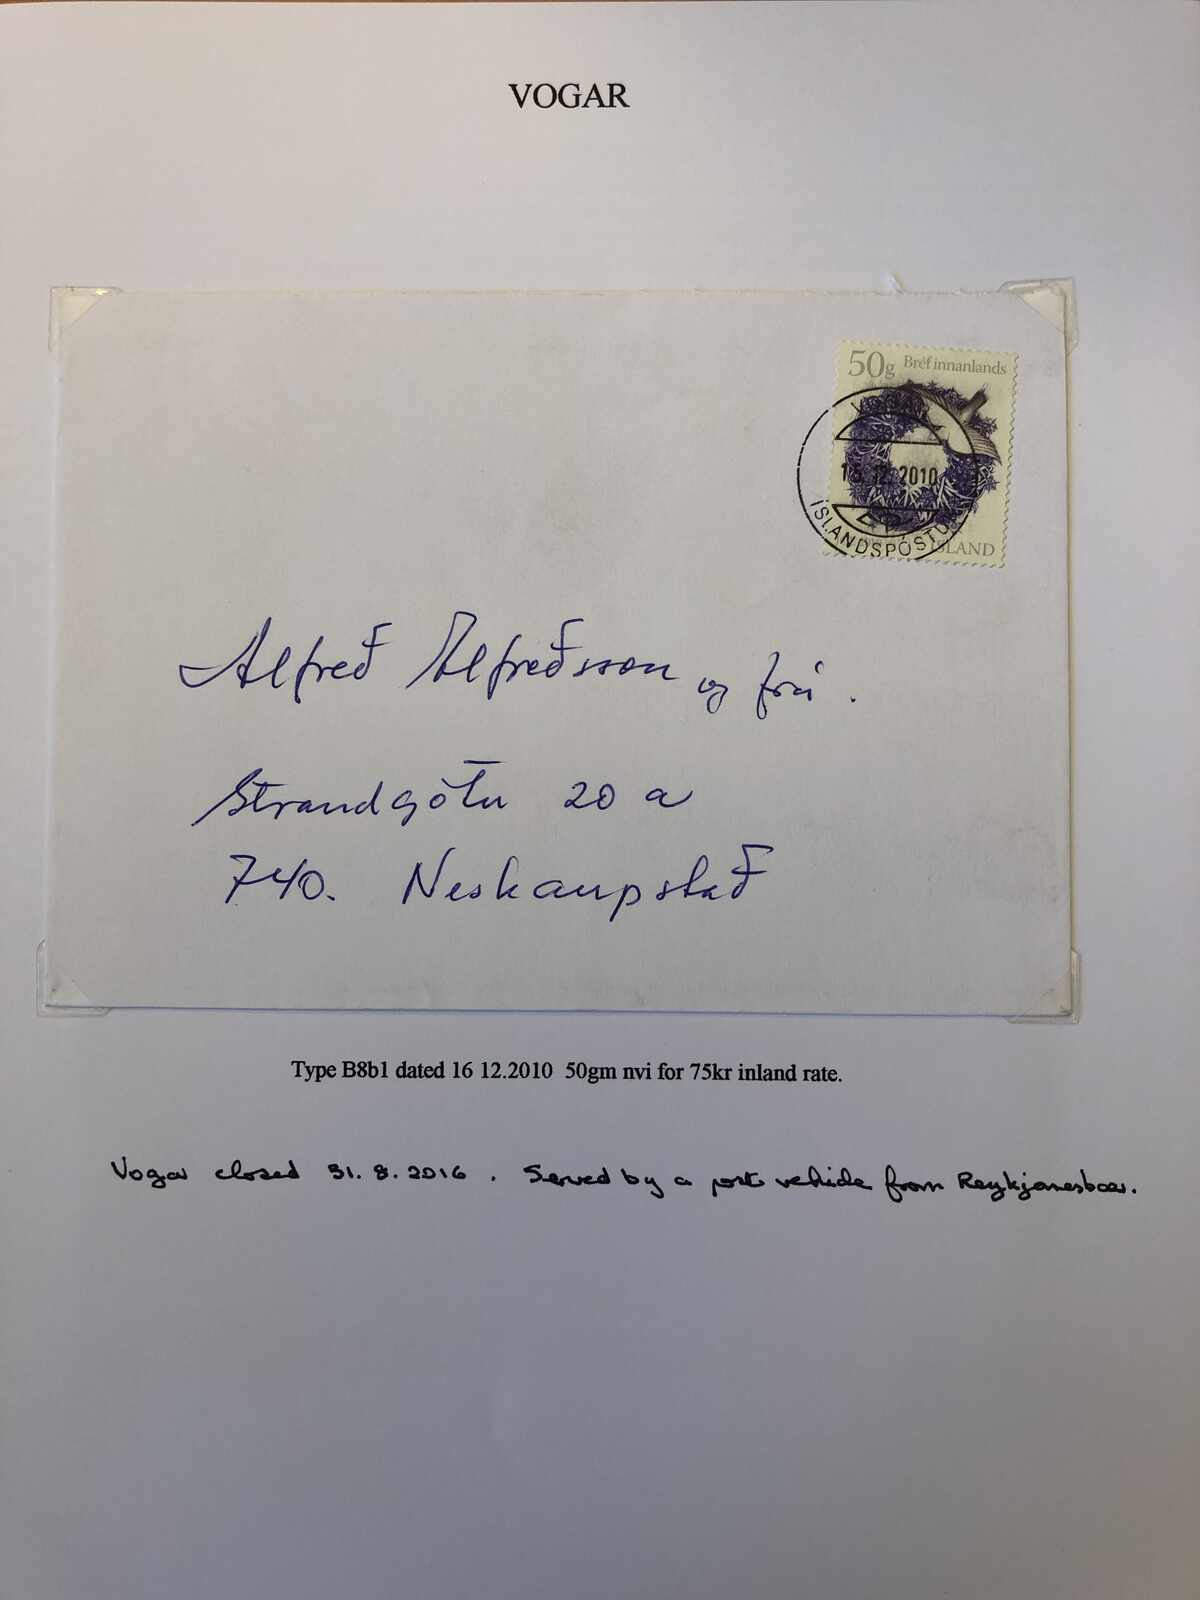 VOGAR
50g Bréf innanlands
VOGAR
15.12.2010
ÍSLANDSPÓSTUR
ÍSLAND
Alfreð Alfreðsson og frú.
Strandgötu 20 a
740. Neskaupstað
Type B8b1 dated 16 12.2010 50gm nvi for 75kr inland rate.
Vogar closed 31.8.2016. Served by a post vehicle from Reykjanesbaer.